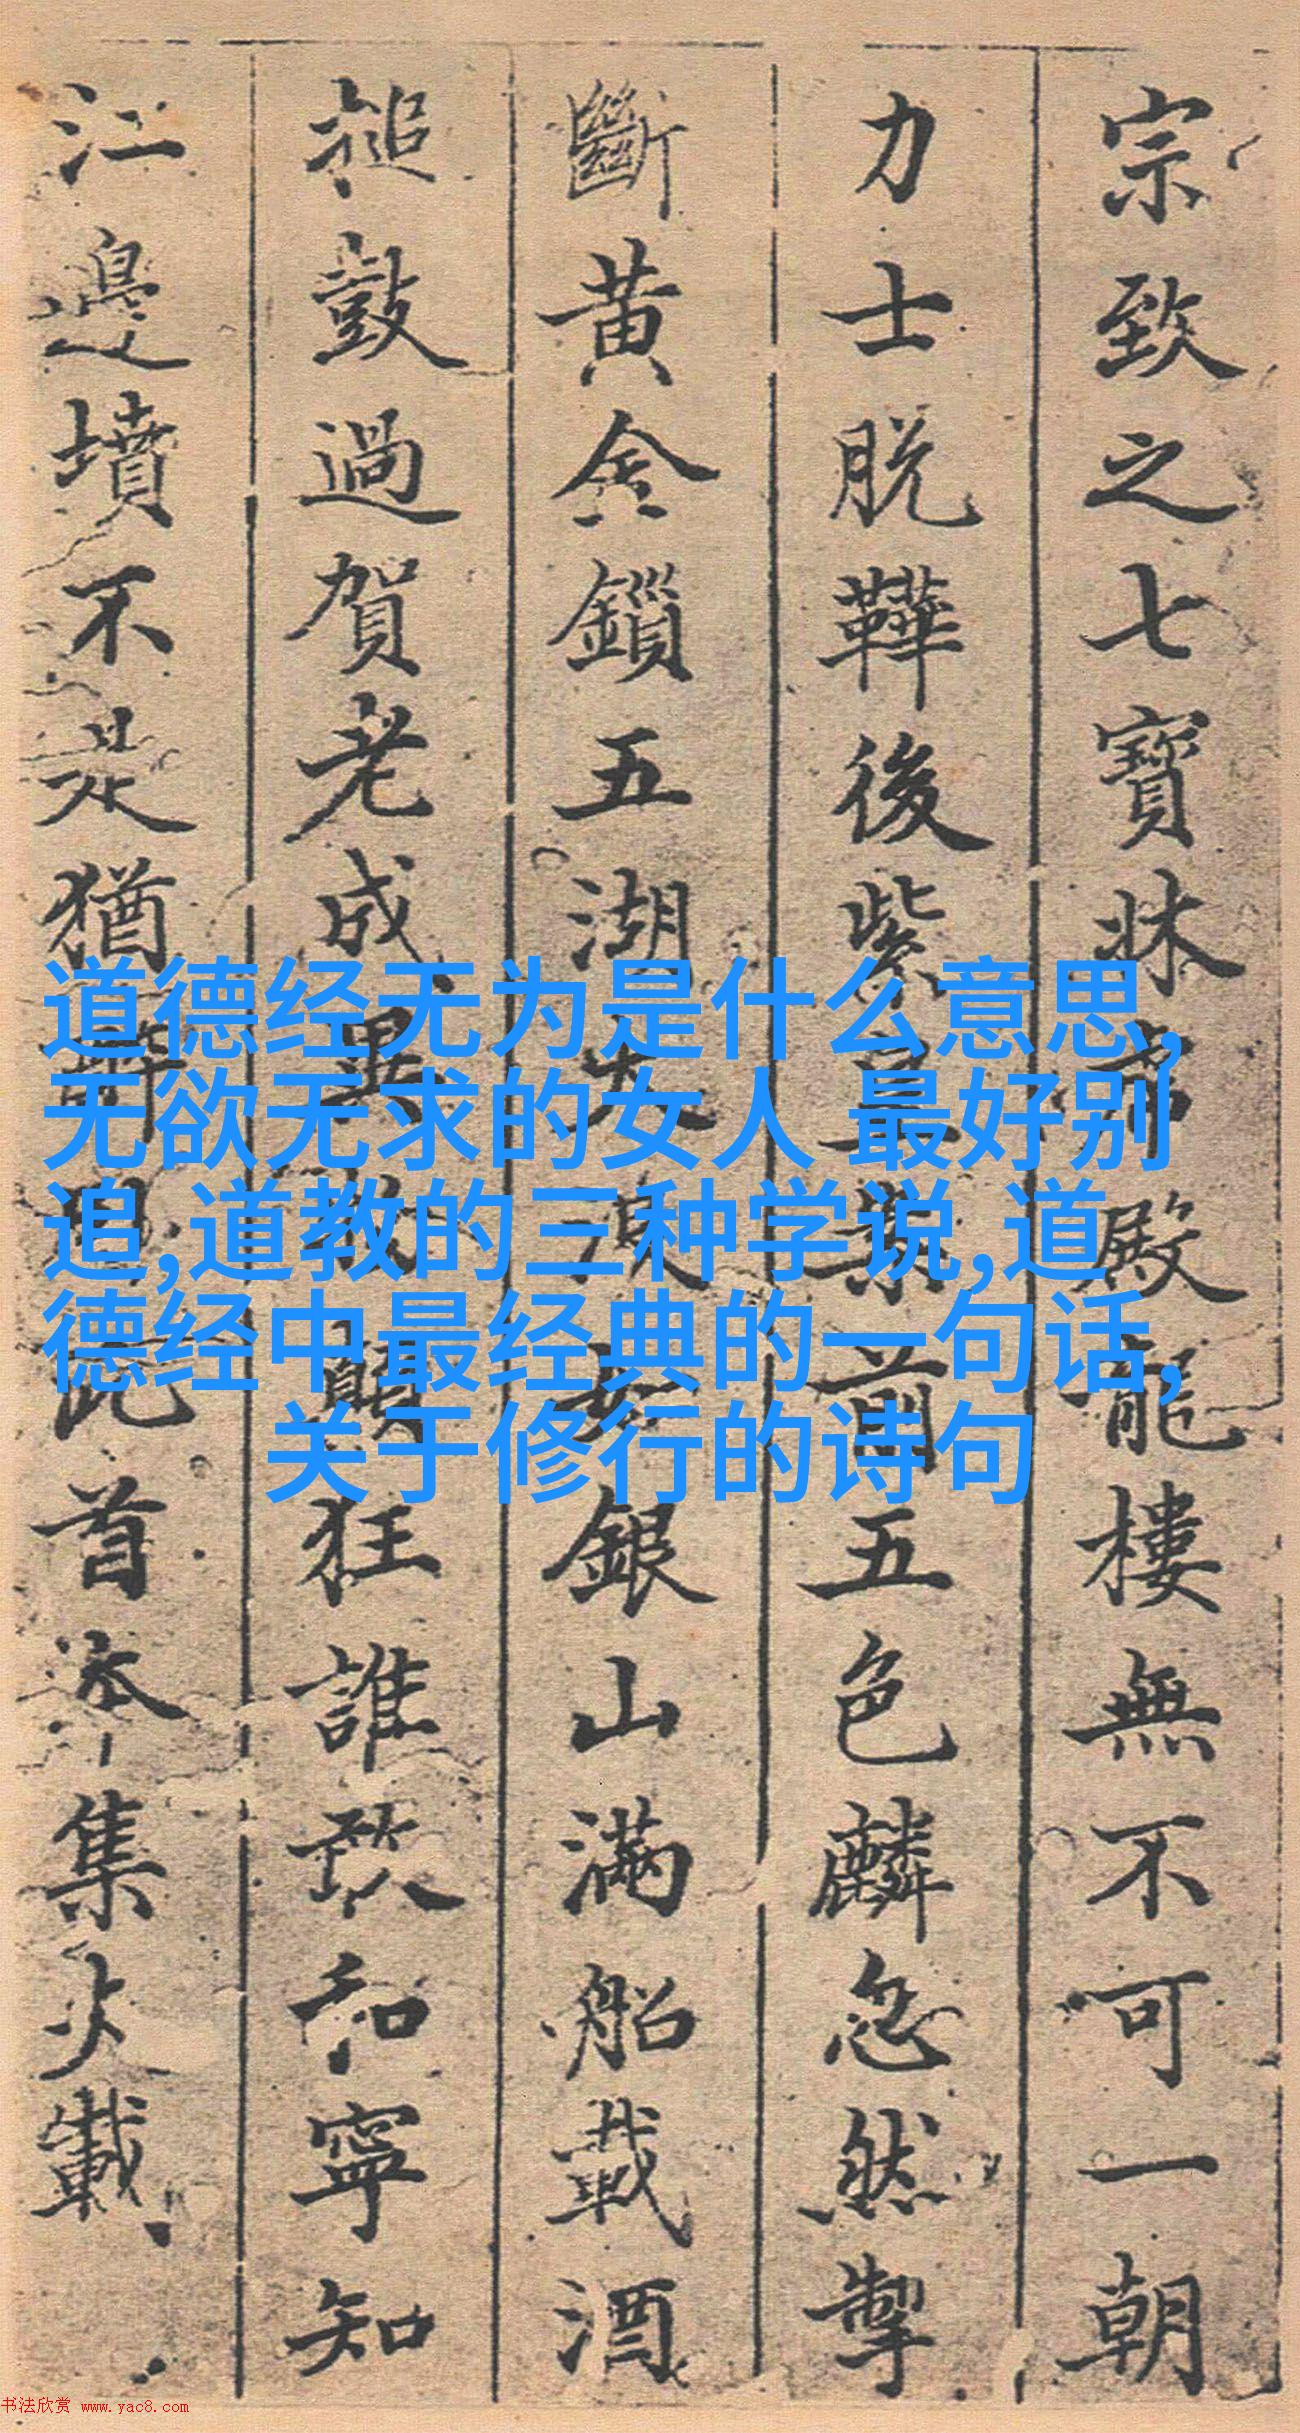 宗致之七寶牀帝殿龍樓無不可一朝
力士脱鞾後紫皇案前五色麟忽然掣
斷黃金鎖五湖大浪如銀山滿船載酒
搥鼓過賀老成異物顛狂誰敢和寧知
江邊墳不是猶醉眠此首本集失載
道德经无为是什么意思,
无欲无求的女人 最好别
追,道教的三种学说,道
德经中最经典的一句话,
关于修行的诗句
书法欣赏 www.yac8.com